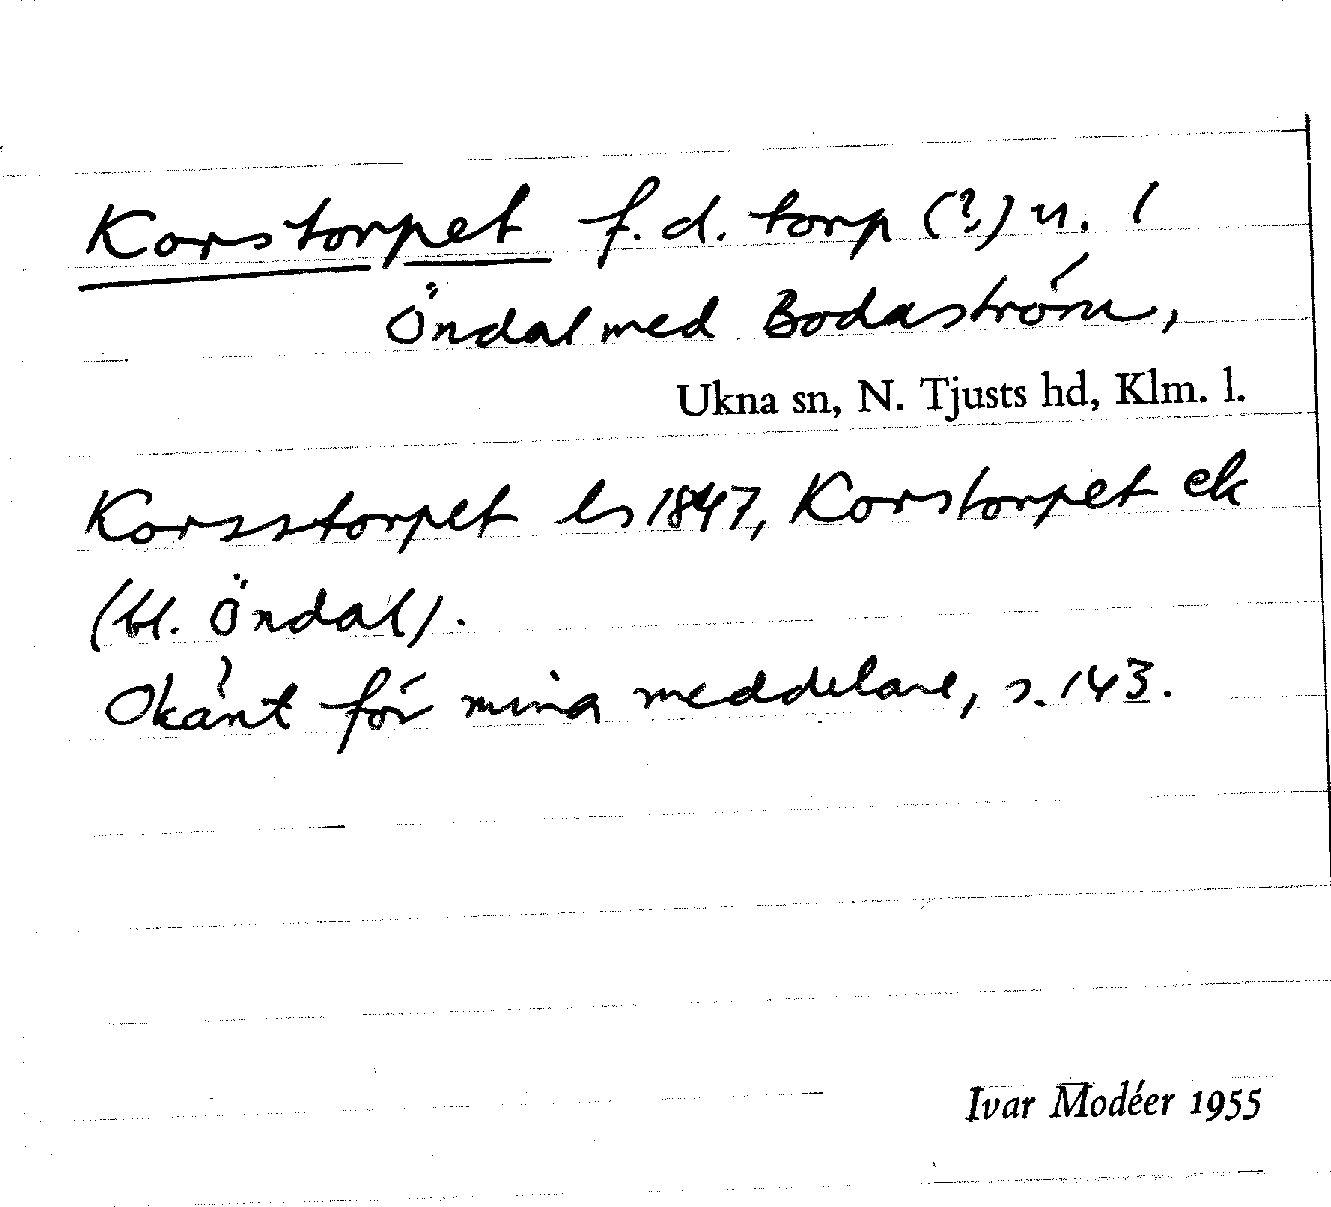 Korstorpet f.d. torp (?) u. l
Öndal med Bodaström,
Ukna sn, N. Tjusts hd, Klm. l.
Korsstorpet ls 1847, Korstorpet ek
(bl. Öndal).
Okänt för mina meddelare, s. 143.
Ivar Modéer 1955